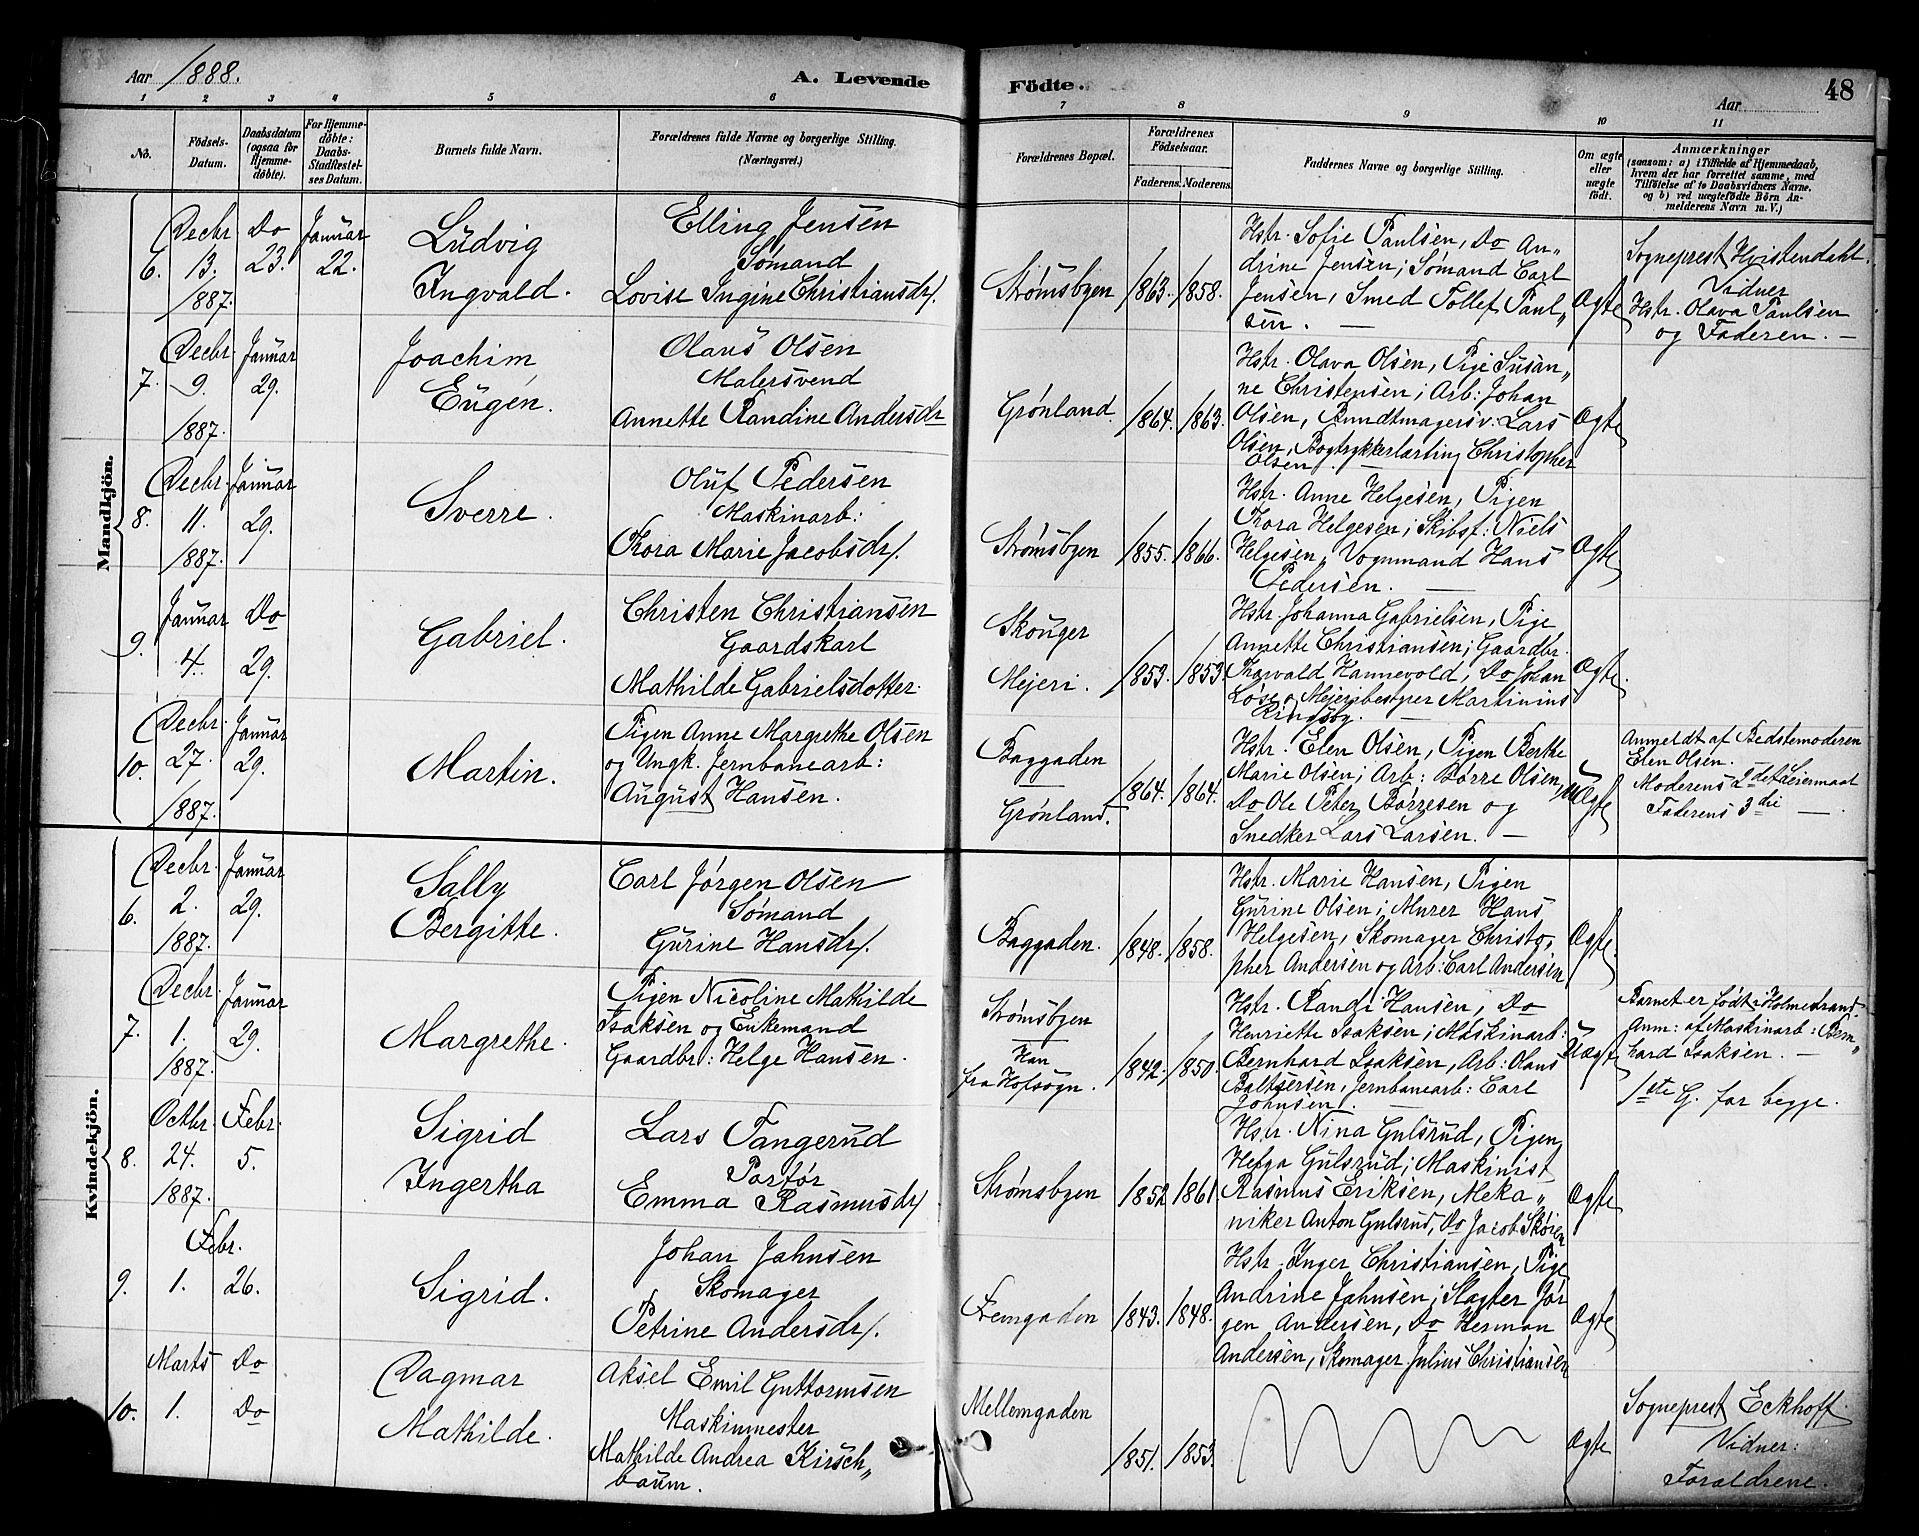 Aar 1888. A. Levende Fødte. Aar 48
1 2 3 4 5 6 7 8 9 10 11
No.
Födsels-
Datum.
Daabsdatum
(ogsaa for
Hjemme-
döbte).
For Hjemme-
döbte:
Daabs-
Stadfæstel-
ses Datum.
Barnets fulde Navn.
Forældrenes fulde Navne og borgerlige Stilling.
(Næringsvei.)
Forældrenes Bopæl.
Forældrenes
Födselsaar.
Faderens. Moderens.
Faddernes Navne og borgerlige Stilling.
Om ægte
eller
uægte
födt.
Anmærkninger
(saasom: a) i Tilfælde af Hjemmedaab,
hvem der har forrettet samme, med
Tilföielse af to Daabsvidners Navne,
og b) ved uægtefödte Börn An-
melderens Navn m. V.)
Mandkjön.
6.
Decbr.
13.
1887.
Do
23.
Januar
22.
Ludvig
Ingvald.
Elling Jensen
Sømand
Lovise Ingine Christiansdr/.
Strømsbyen
1863. 1858.
Hstr. Sofie Paulsen, Do An„
drine Jensen; Sømand Carl
Jensen, Smed Tollef Paul„
sen. —
Ægte
Sogneprest Hvistendahl.
Vidner
Hstr. Olava Paulsen
og Faderen. —
7.
Decbr.
9.
1887.
Januar
29.
Joachim
Eugen.
Olaus Olsen
Malersvend
Annette Randine Andersdr
Grønland.
1864. 1863.
Hstr. Olava Olsen, Pige Susan„
ne Christensen; Arb: Johan
Olsen, Bundtmagersv: Lars
Olsen, Bogtrykkerlærling Christopher
Olsen. —
Ægte
8.
Decbr.
11.
1887.
Januar
29.
Sverre.
Oluf Pedersen
Maskinarb:
Thora Marie Jacobsdr/.
Strømsbyen
1855. 1866.
Hstr. Anne Helgesen, Pigen
Thora Helgesen; Skibst: Niels
Helgesen, Vognmand Hans
Pedersen. —
Ægte
9.
Januar
4.
Do
29.
Gabriel.
Christen Christiansen
Gaardskarl
Mathilde Gabrielsdotter.
Skouger
Mejeri.
1853. 1853.
Hstr. Johanna Gabrielsen, Pige
Annette Christiansen; Gaardbr.
Thorvald Hannevold, Do Johan
Løse, Mejeribestyrer Martinius
Ringsøg. —
Ægte.
10.
Decbr.
27.
1887.
Januar
29.
Martin.
Pigen Anne Margrethe Olsen
og Ungk. Jernbanearb:
August Hansen.
Baggaden
Grønland.
1864. 1864.
Hstr. Elen Olsen, Pigen Berthe
Marie Olsen; Arb: Børre Olsen,
Do Ole Peter Børresen og
Snedker Lars Larsen. —
Uægte
Anmeldt af Bedstemoderen
Elen Olsen.
Moderens 2det Leiermaal
Faderens 3die —.
Kvindekjön.
6.
Decbr.
2.
1887.
Januar
29.
Sally
Bergitte.
Carl Jørgen Olsen
Sømand
Gurine Hansdr/.
Baggaden.
1848. 1858.
Hstr. Marie Hansen, Pigen
Gurine Olsen; Murer Hans
Helgesen, Skomager Christo„
pher Andersen og Arb: Carl Andersen
Ægte.
7.
Decbr.
1.
1887.
Januar
29.
Margrethe.
Pigen Nicoline Mathilde
Isaksen og Enkemand
Gaardbr: Helge Hansen.
Strømsbyen
Han
fra Hofsogn.
1842. 1850.
Hstr. Randi Hansen, Do
Henriette Isaksen; Maskinarb:
Bernhard Isaksen, Arb: Olaus
Baltsersen, Jernbanearb: Carl
Johnsen. —
Uægte
Barnet er født i Holmestrand.
Anm: af Maskinarb: Bern„
hard Isaksen. —
1ste G. for begge.
8.
Octbr.
24.
1887.
Febr.
5.
Sigrid
Ingertha
Lars Tangerud
Portør
Emma Rasmusdr/
Strømsbyen
1852 1861
Hstr. Nina Gulsrud, Pigen
Helga Gulsrud; Maskinist
Rasmus Eriksen, Meka„
niker Anton Gulsrud, Do Jacob Skøien
Ægte
9.
Febr.
1.
26.
Sigrid.
Johan Jahnsen
Skomager
Petrine Andersdr/.
Femgaden
1843. 1848.
Hstr. Inger Christiansen, Pige
Andrine Jahnsen; Slagter Jør
gen Andersen, Do Herman
Andersen, Skomager Julius Christiansen
Ægte
10.
Marts
1.
Do
Do
Dagmar
Mathilde.
Aksel Emil Guttormsen
Maskinmester
Mathilde Andrea Kirsch„
baum.
Mellemgaden
1851. 1853.
Ægte
Sogneprest Eckhoff.
Vidner:
Forældrene.